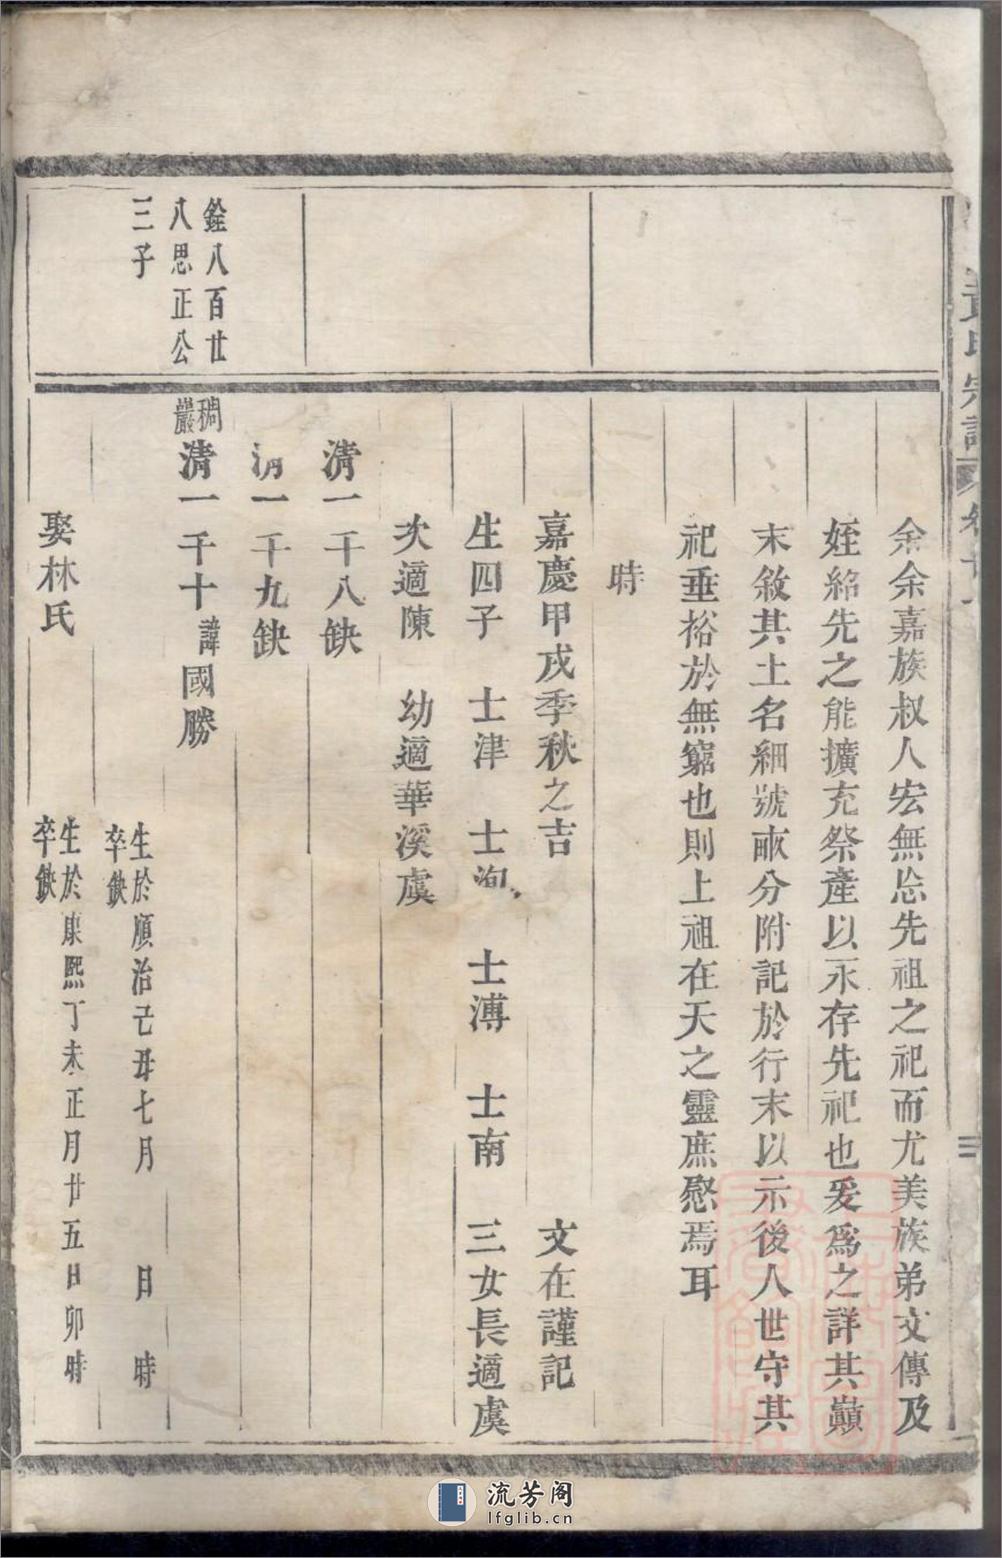 黃氏宗譜
余余嘉族叔人宏無忝先祖之祀而尤美族弟文傳及
姪紹先之能擴充祭產以永存先祀也爰為之詳其巔
末敘其土名細號畝分附記於行末以示後人世守其
祀垂裕於無窮也則上祖在天之靈庶慰焉耳
時
嘉慶甲戌季秋之吉 文在謹記
生四子 士津 士洵 士溥 士南 三女長適虞
次適陳 幼適華溪虞
清一千八缺
清一千九缺
銓八百廿
八思正公
三子
稠
巖
清一千十諱國勝
生於順治己丑七月 日 時
卒缺
娶林氏
生於康熙丁未正月廿五日卯時
卒缺
流芳阁
lfglib.cn